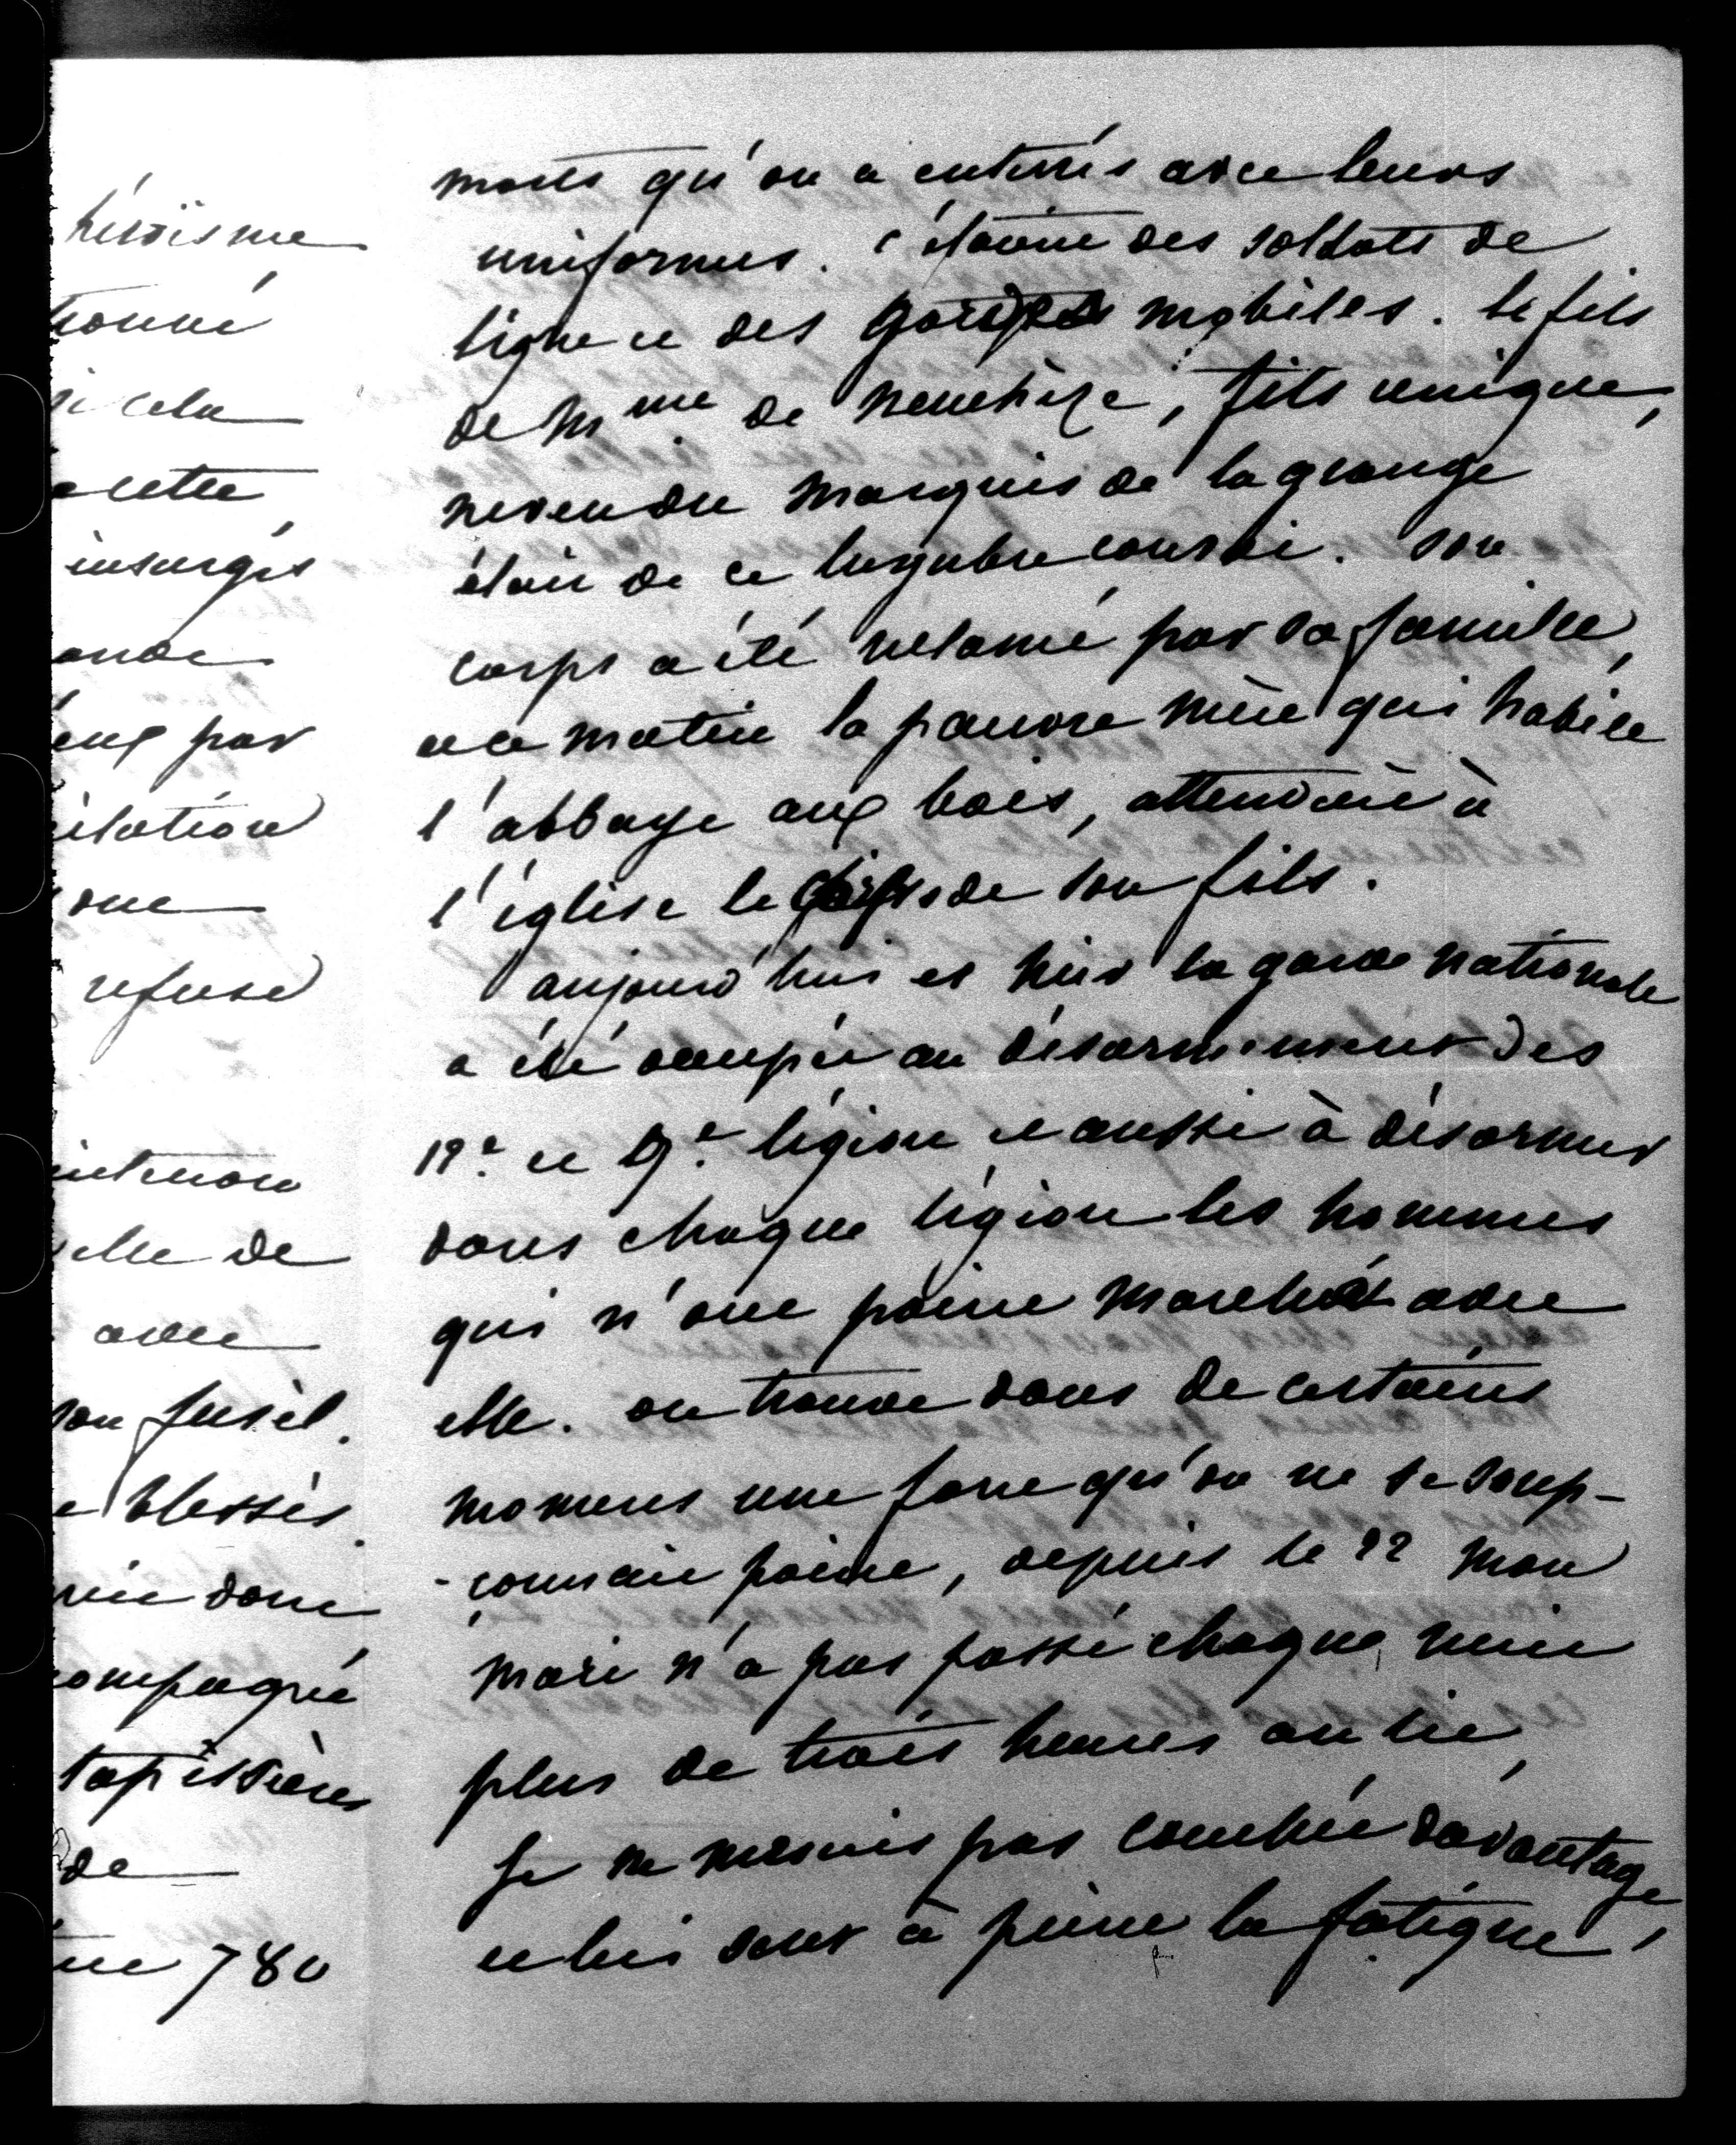 héroïsme
tionné
si cela
entre
insurgés
onde
eux par
ilation
que
refusé
intention
elle de
avec
son fusil.
e blessés.
donc
compagnie
tapissières
de
780
morts qu'on a enterrés avec leurs
uniformes. c'étaient des soldats de
ligne et des gardes mobiles. le fils
de Mme de neuchèze, fils unique,
neveu du Marquis de lagrange
était de ce lugubre convoi. son
corps a été réclamé par sa famille,
et ce matin la pauvre mère qui habite
l'abbaye aux bois, attendait à
l'église le corps de son fils.
aujourd'hui et hier la garde nationale
a été occupée au désarmement des
12e et 9e légion et aussi à désarmer
dans chaque légion les hommes
qui n'ont point marché avec
elle. on trouve dans de certains
momens une force qu'on ne se soup-
-çonnait point, depuis le 22 mon
mari n'a pas passé chaque nuit
plus de trois heures au lit,
je ne me suis pas couchée davantage,
et lui sent à peine la fatigue,